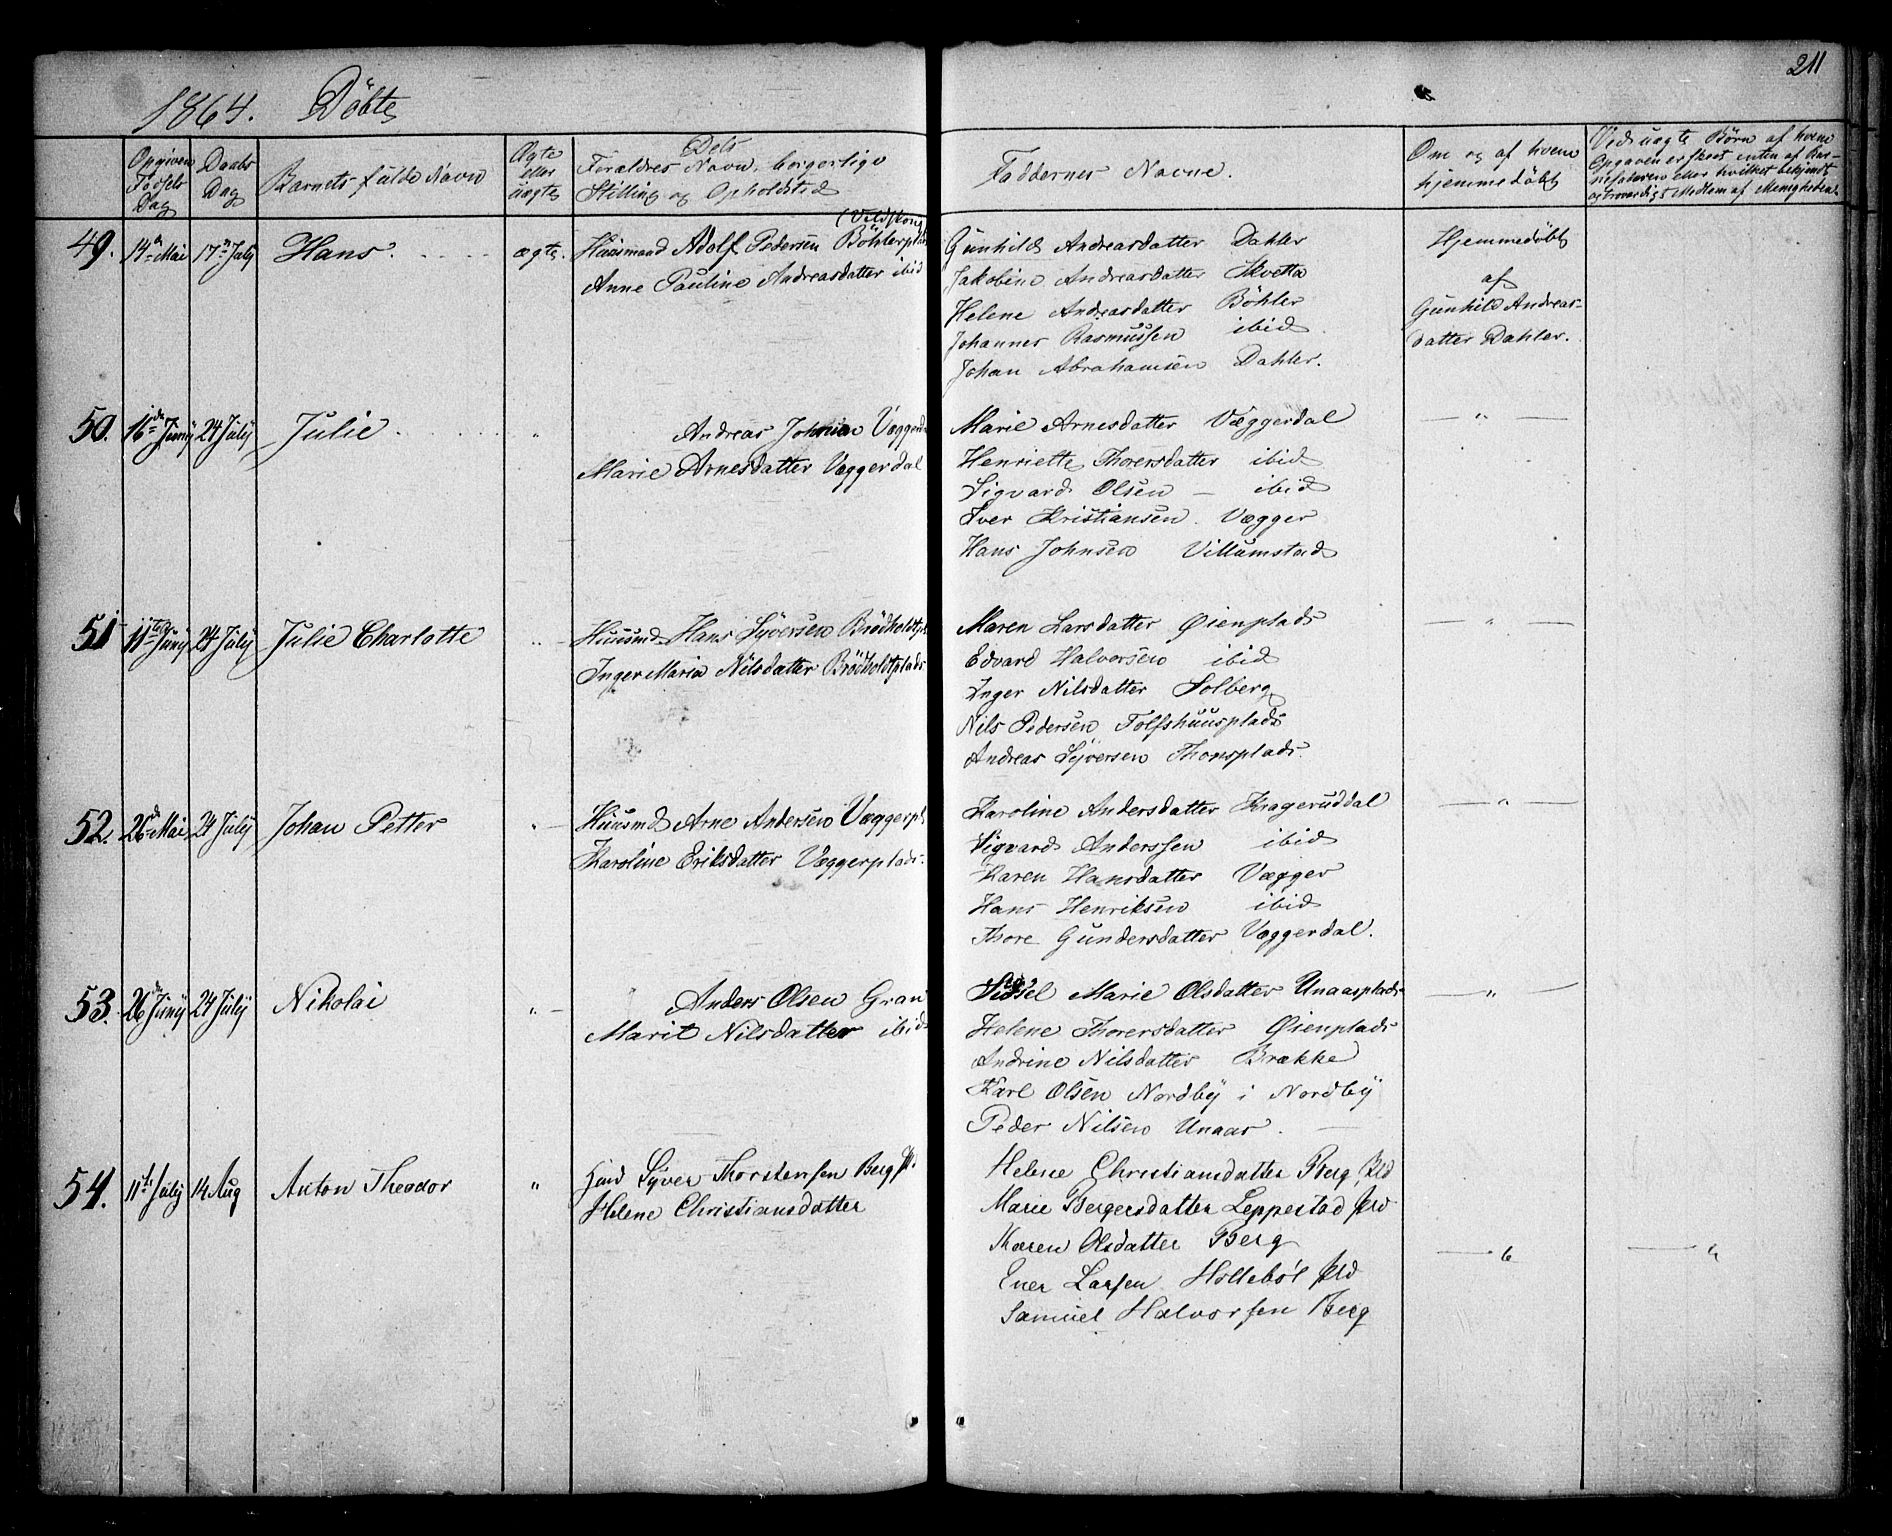 211
1864. Döbte
Opgiven Födsels Dag
Daabs Dag
Barnets fulde Navn
Ægte eller uægte
Dets Forældres Navn, borgerlige Stilling og Opholdsted
Faddernes Navne.
Om og af hvem hjemmedöbt
Ved uægte Börn af hvem Opgaven er skeet enten af Barnefaderen eller hvilket bekjendt og troværdigt Medlem af Menigheden
49. 14de Mai 17de July Hans. ægte. Huusmand Adolf Pedersen Böhlerplads
Anne Pauline Andreasdatter ibid
Gunhild Andreasdatter Dahler
Jakobine Andreasdatter Skvetta
Helene Andreasdatter Böhler
Johannes Rasmussen ibid
Johan Abrahamsen Dahler.
Hjemmedöbt
af
Gunhild Andreas-
datter Dahler.
50. 16de Juny 24 July Julie. " Andreas Johnsen Væggerdal
Marie Arnesdatter Væggerdal
Marie Arnesdatter Væggerdal — " —
Henriette Thorersdatter ibid
Sigvard Olsen — ibid
Iver Kristiansen. Vægger
Hans Johnsen Villumstad
51 11te Juny 24 July Julie Charlotte Huusmd Hans Syversen Brödholtpl.
Inger Maria Nilsdatter Brödholtplads
Maren Larsdatter Øienplads — " —
Edvard Halvorsen ibid
Inger Nilsdatter Solberg
Nils Pedersen Tolfshuusplads
Andreas Syversen Thonsplads.
52. 28de Mai 24 July Johan Petter " — Huusmd Arne Andersen Væggerpl.
Karoline Eriksdatter Væggerplads.
Karoline Andersdatter Krageruddal — " —
Sigvard Anderssen ibid
Karen Hansdatter Vægger
Hans Henriksen ibid
Thore Gundersdatter Væggerdal.
53. 26de Juny 24 July Nikolai " — " Anders Olsen Gran
Marit Nilsdatter ibid
Sidsel Marie Olsdatter Unaasplads — " —
Helene Thorersdatter Øienplads
Andrine Nilsdatter Brække
Karl Olsen Nordby i Nordby
Peder Nilsen Unaas.
54. 11te July 14 Aug Anton Theodor " Syver Thorstensen Berg Pl.
Helene Christiansdatter
Helene Christiansdatter Berg Pld
Marie Bergersdatter Leppestad Pld
Karen Olsdatter Berg — " — — " —
Ener Larsen Hollebøl Pld
Samuel Halvorsen Berg